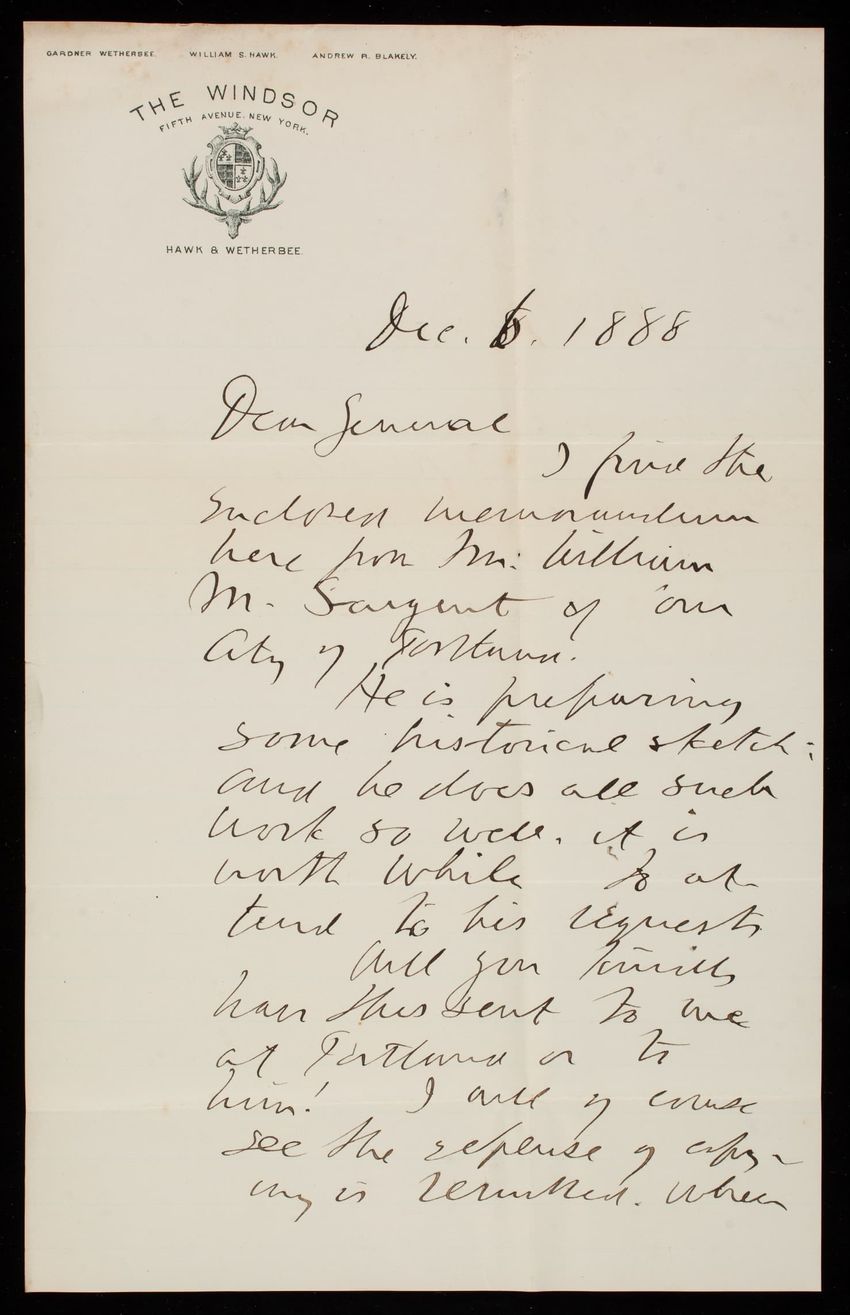 GARDNER WETHERBEE. WILLIAM S. HAWK. ANDREW R. BLAKELY.
THE WINDSOR
FIFTH AVENUE. NEW YORK.
HAWK & WETHERBEE.
Dec. 6. 1888
Dear General
I find the
enclosed memorandum
here from Mr. William
M. Sargent of our
City of Portland.
He is preparing
some historical sketch;
and he does all such
work so well, it is
worth while to at-
tend to his requests
Will you kindly
have this sent to me
at Portland or to
him! I will of course
see the expense of copy-
ing is remitted. When